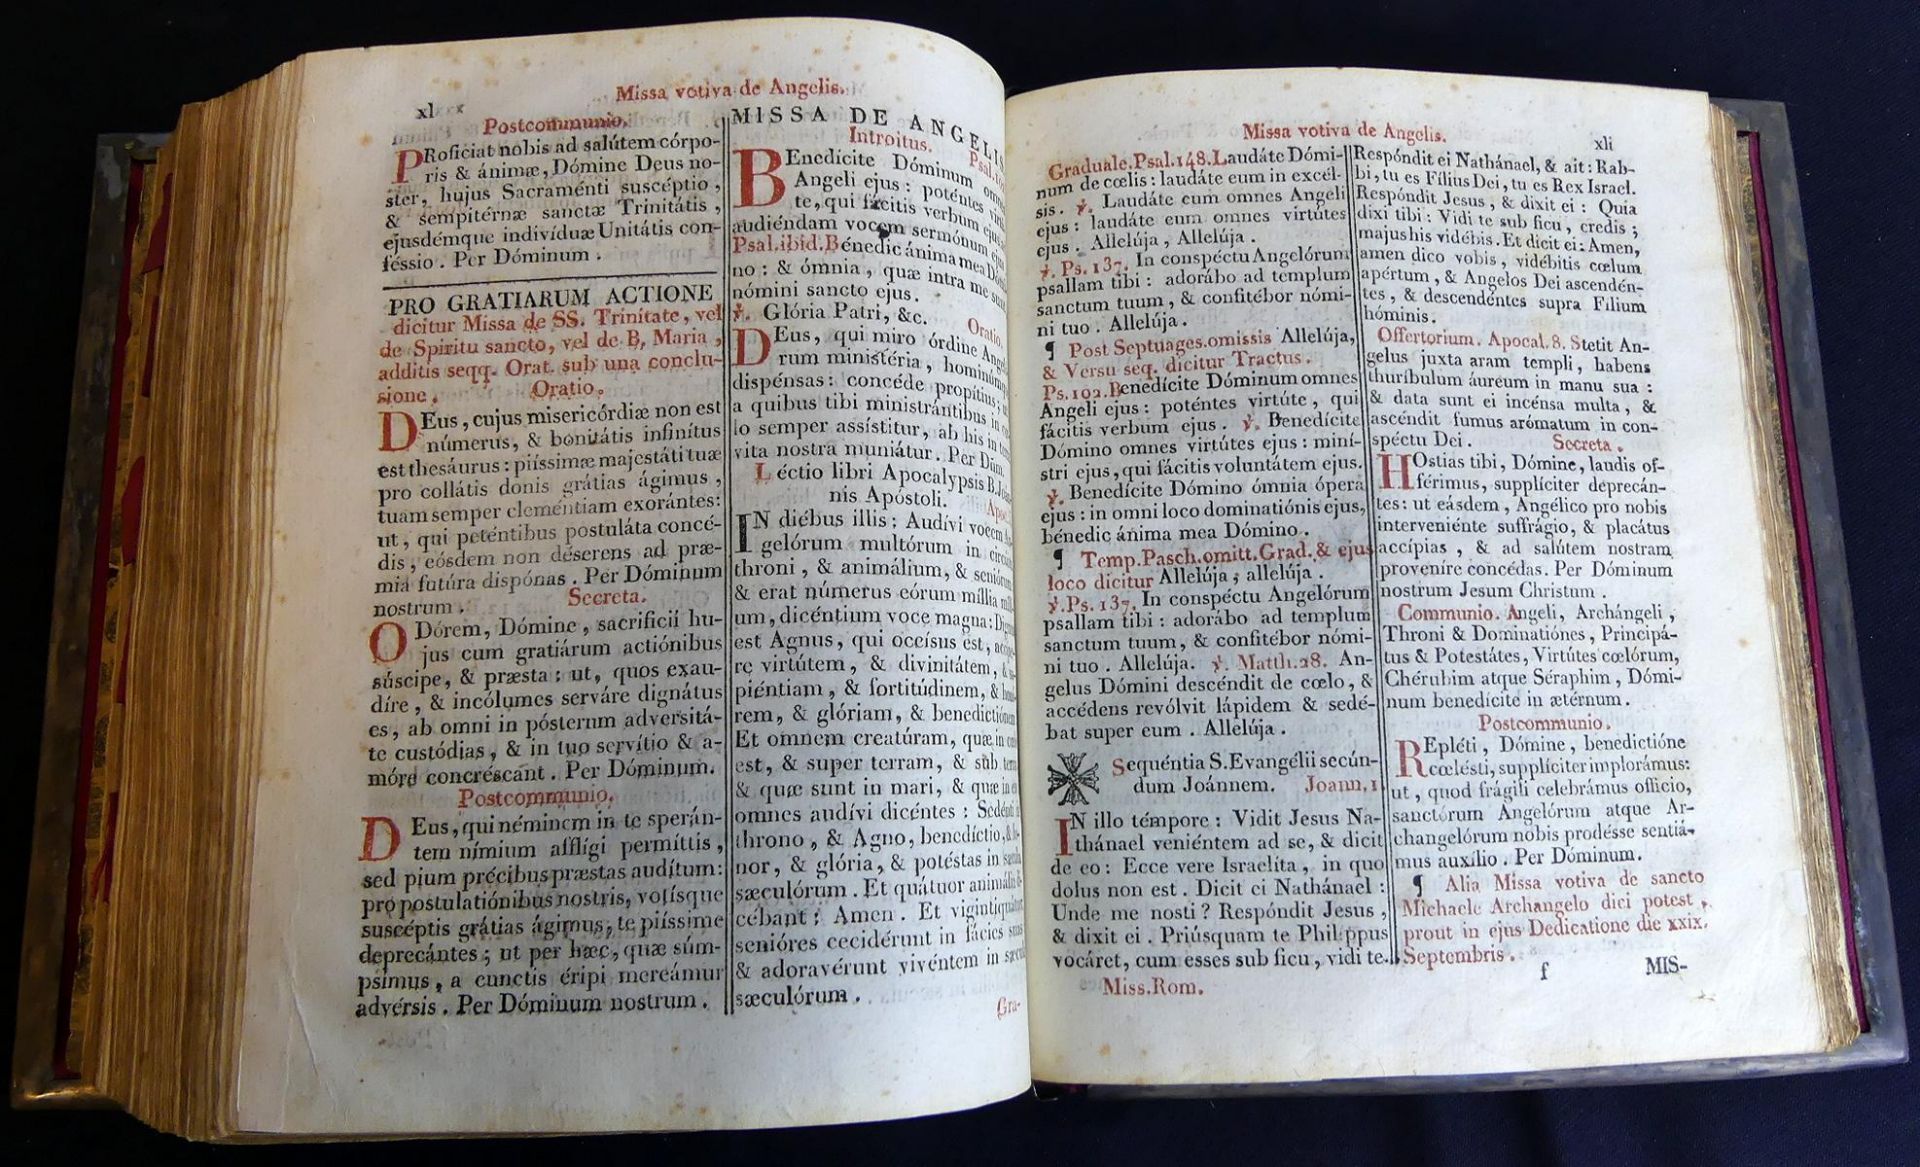 xl
Missa votiva de Angelis.
Postcommunio.
PRoficiat nobis ad salútem córpo-
ris & ánimæ, Dómine Deus no-
ster, hujus Sacraménti suscéptio,
& sempitérnæ sanctæ Trinitátis,
ejusdémque indivíduæ Unitátis con-
féssio. Per Dóminum.
PRO GRATIARUM ACTIONE
dicitur Missa de SS. Trinitate, vel
de Spiritu sancto, vel de B. Maria,
additis seqq. Orat. sub una conclu-
sione. Oratio.
DEus, cujus misericórdiæ non est
númerus, & bonitátis infinítus
est thesáurus: piíssimæ majestáti tuæ
pro collátis donis grátias ágimus,
tuam semper cleméntiam exorántes:
ut, qui peténtibus postuláta concé-
dis, eósdem non déserens ad præ-
mia futúra dispónas. Per Dóminum
nostrum. Secreta.
ODórem, Dómine, sacrifícii hu-
jus cum gratiárum actiónibus
súscipe, & præsta: ut, quos exau-
díre, & incólumes serváre dignátus
es, ab omni in pósterum adversitá-
te custódias, & in tuo servítio & a-
móre concréscant. Per Dóminum.
Postcommunio.
DEus, qui néminem in te sperán-
tem nímium afflígi permíttis,
sed pium précibus præstas audítum:
pro postulatiónibus nostris, votísque
suscéptis grátias ágimus, te piíssime
deprecántes; ut per hæc, quæ súm-
psimus, a cunctis éripi mereámur
advérsis. Per Dóminum nostrum.
MISSA DE ANGELIS.
Introitus. Psal.
BEnedícite Dóminum omnes
Angeli ejus: poténtes virtú-
te, qui fácitis verbum ejus, ad
audiéndam vocem sermónum ejus.
Psal.ibid. Bénedic ánima mea Dómi-
no: & ómnia, quæ intra me sunt
nómini sancto ejus.
℣. Glória Patri, &c. Oratio.
DEus, qui miro órdine Angeló-
rum ministéria, hominúmque
dispénsas: concéde propítius; ut
a quibus tibi ministrántibus in cœ-
lo semper assístitur, ab his in terra
vita nostra muniátur. Per Dóm.
Léctio libri Apocalypsis B. Joán-
nis Apóstoli. Apoc.
IN diébus illis: Audívi vocem An-
gelórum multórum in circúitu
throni, & animálium, & seniórum
& erat númerus eórum míllia míll-
um, dicéntium voce magna: Dignus
est Agnus, qui occísus est, accípe-
re virtútem, & divinitátem, & sa-
piéntiam, & fortitúdinem, & honó-
rem, & glóriam, & benedictiónem
Et omnem creatúram, quæ in cœlo
est, & super terram, & sub terra
& quæ sunt in mari, & quæ in eo
omnes audívi dicéntes: Sedénti in
throno, & Agno, benedíctio, & ho-
nor, & glória, & potéstas in sæcula
sæculórum. Et quátuor animália di-
cébant: Amen. Et vigintiquátuor
senióres cecidérunt in fácies suas
& adoravérunt vivéntem in sæcula
sæculórum.
Gra-
Missa votiva de Angelis.
xli
Graduale. Psal. 148. Laudáte Dómi-
num de cœlis: laudáte eum in excél-
sis. ℣. Laudáte eum omnes Angeli
ejus: laudáte eum omnes virtútes
ejus. Allelúja, Allelúja.
℣. Ps. 137. In conspéctu Angelórum
psallam tibi: adorábo ad templum
sanctum tuum, & confitébor nómi-
ni tuo. Allelúja.
¶ Post Septuages. omissis Allelúja,
& Versu seq. dicitur Tractus.
Ps. 102. Benedícite Dóminum omnes
Angeli ejus: poténtes virtúte, qui
fácitis verbum ejus. ℣. Benedícite
Dómino omnes virtútes ejus: miní-
stri ejus, qui fácitis voluntátem ejus.
℣. Benedícite Dómino ómnia ópera
ejus: in omni loco dominatiónis ejus,
bénedic ánima mea Dómino.
¶ Temp. Pasch. omitt. Grad. & ejus
loco dicitur Allelúja, allelúja.
℣. Ps. 137. In conspéctu Angelórum
psallam tibi: adorábo ad templum
sanctum tuum, & confitébor nómi-
ni tuo. Allelúja. ℣. Matth. 28. An-
gelus Dómini descéndit de cœlo, &
accédens revólvit lápidem & sedé-
bat super eum. Allelúja.
Sequéntia S. Evangélii secún-
dum Joánnem. Joann. 1
IN illo témpore: Vidit Jesus Na-
thánael veniéntem ad se, & dicit
de eo: Ecce vere Israelíta, in quo
dolus non est. Dicit ei Nathánael:
Unde me nosti? Respóndit Jesus,
& dixit ei. Priúsquam te Philíppus
vocáret, cum esses sub ficu, vidi te.
Miss. Rom.
Respóndit ei Nathánael, & ait: Rab-
bi, tu es Fílius Dei, tu es Rex Israel.
Respóndit Jesus, & dixit ei: Quia
dixi tibi: Vidi te sub ficu, credis;
majus his vidébis. Et dicit ei: Amen,
amen dico vobis, vidébitis cœlum
apértum, & Angelos Dei ascendén-
tes, & descendéntes supra Fílium
hóminis.
Offertorium. Apocal. 8. Stetit An-
gelus juxta aram templi, habens
thuríbulum áureum in manu sua:
& data sunt ei incénsa multa, &
ascéndit fumus arómatum in con-
spéctu Dei. Secreta.
HOstias tibi, Dómine, laudis of-
férimus, supplíciter deprecán-
tes: ut eásdem, Angélico pro nobis
interveniénte suffrágio, & placátus
accípias, & ad salútem nostram
proveníre concédas. Per Dóminum
nostrum Jesum Christum.
Communio. Angeli, Archángeli,
Throni & Dominatiónes, Principá-
tus & Potestátes, Virtútes cœlórum,
Chérubim atque Séraphim, Dómi-
num benedícite in ætérnum.
Postcommunio.
REpléti, Dómine, benedictióne
cœlésti, supplíciter implorámus:
ut, quod frágili celebrámus officio,
sanctórum Angelórum atque Ar-
changelórum nobis prodésse sentiá-
mus auxílio. Per Dóminum.
¶ Alia Missa votiva de sancto
Michaele Archangelo dici potest,
prout in ejus Dedicatione die xxix.
Septembris.
f MIS-